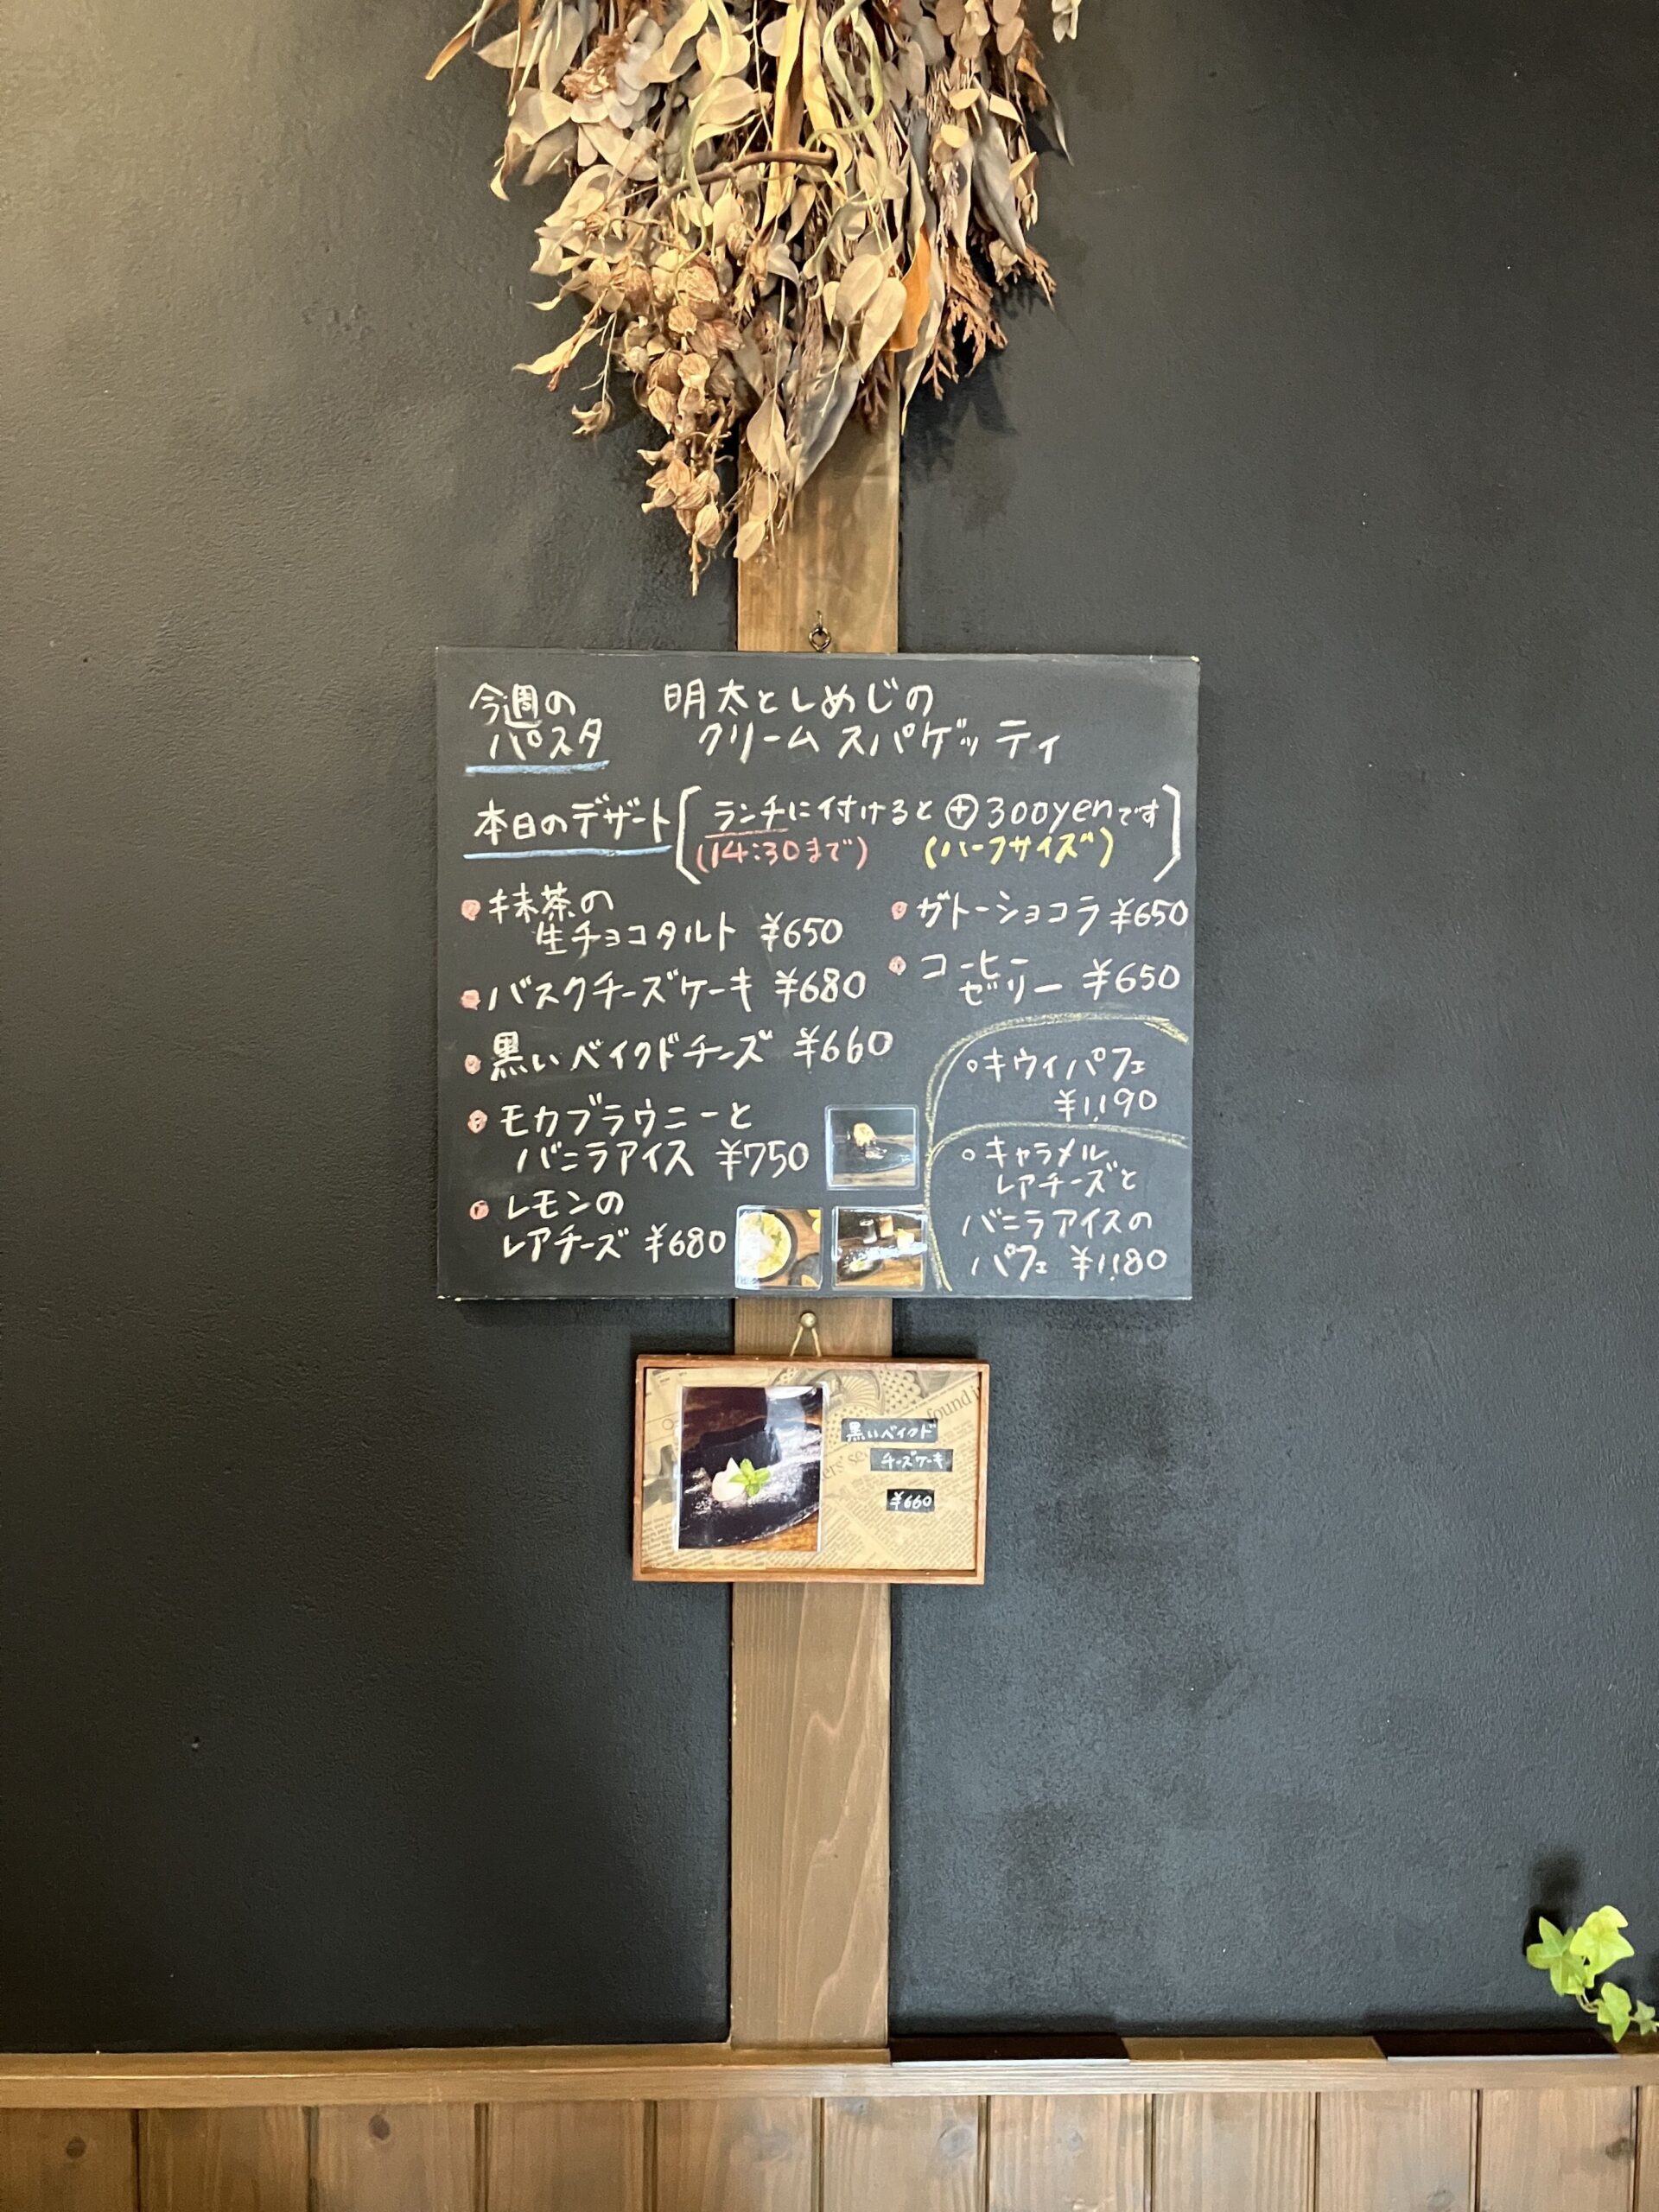 今週の
パスタ
明太としめじの
クリームスパゲッティ
本日のデザート
ランチに付けると⊕300yenです
(14:30まで)
(ハーフサイズ)
抹茶の
生チョコタルト ¥650
バスクチーズケーキ ¥680
黒いベイクドチーズ ¥660
モカブラウニーと
バニラアイス ¥750
レモンの
レアチーズ ¥680
ガトーショコラ ¥650
コーヒー
ゼリー ¥650
キウイパフェ
¥1,190
キャラメル
レアチーズと
バニラアイスの
パフェ ¥1,180
found i
ers' se
黒いベイクド
チーズケーキ
¥660